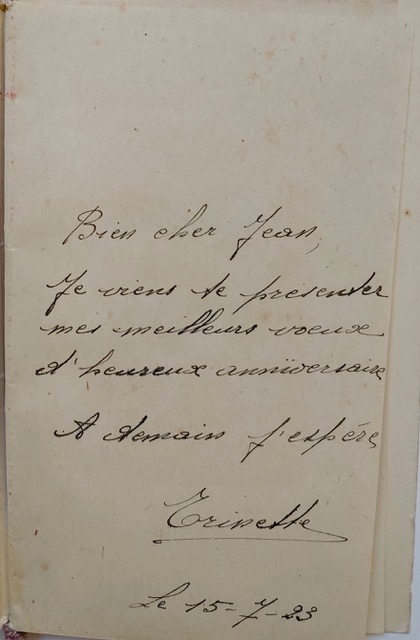 Bien cher Jean,
Je viens te presenter
mes meilleurs voeux
d'heureux anniversaire
A demain j'espére
Trinette
Le 15-7-23